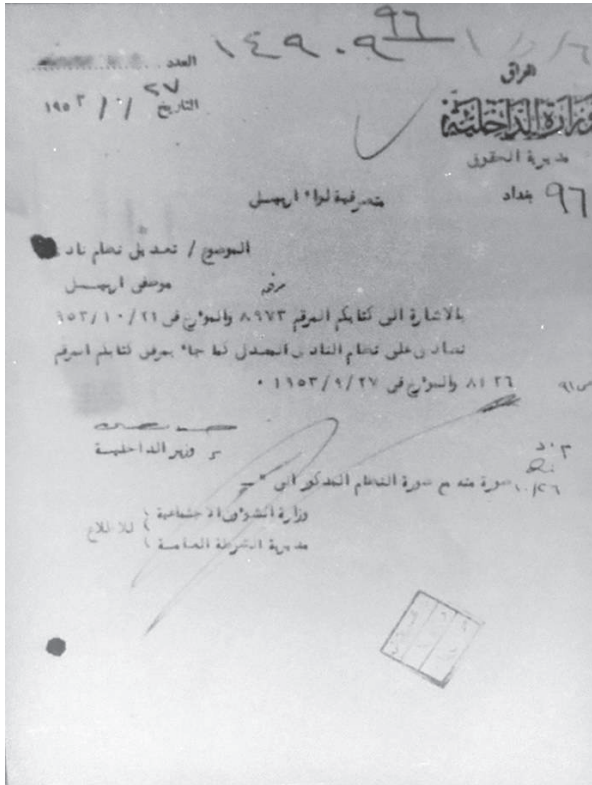 ٩٦
١٤٩٠٩
العدد
العراق
التاريخ ٢٧ / ١ / ١٩٥٣
وزارة الداخلية
مديرية الحقوق
٩٦ بغداد
متصرفية لواء اربيل
الموضوع / تعديل نظام نادي
موظفي اربيل
بالاشارة الى كتابكم المرقم ٨٩٧٣ والمؤرخ في ٩٥٣/١٠/٢١
نصادق على نظام النادي المعدل كما جاء بمرفق كتابكم المرقم
٨١٢٦ والمؤرخ في ١٩٥٣/٩/٢٧ ٠
وزير الداخلية
صورة منه مع صورة النظام المذكور الى :-
وزارة الشؤون الاجتماعية )
مديرية الشرطة العامة ) للاطلاع